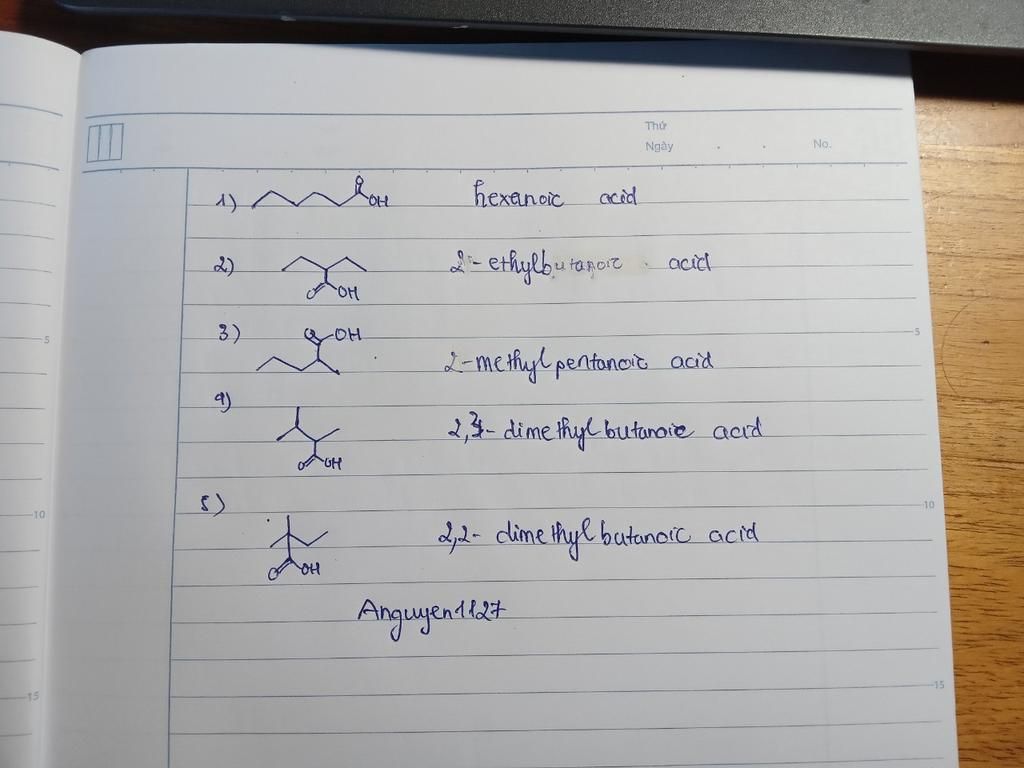 Thứ
Ngày . . No.
1) O OH hexanoic acid
2) O OH 2-ethylbutanoic acid
3) O OH 2-methylpentanoic acid
4) O OH 2,3-dimethylbutanoic acid
5) O OH 2,2-dimethylbutanoic acid
Anguyen1127
5
10
15
5
10
15